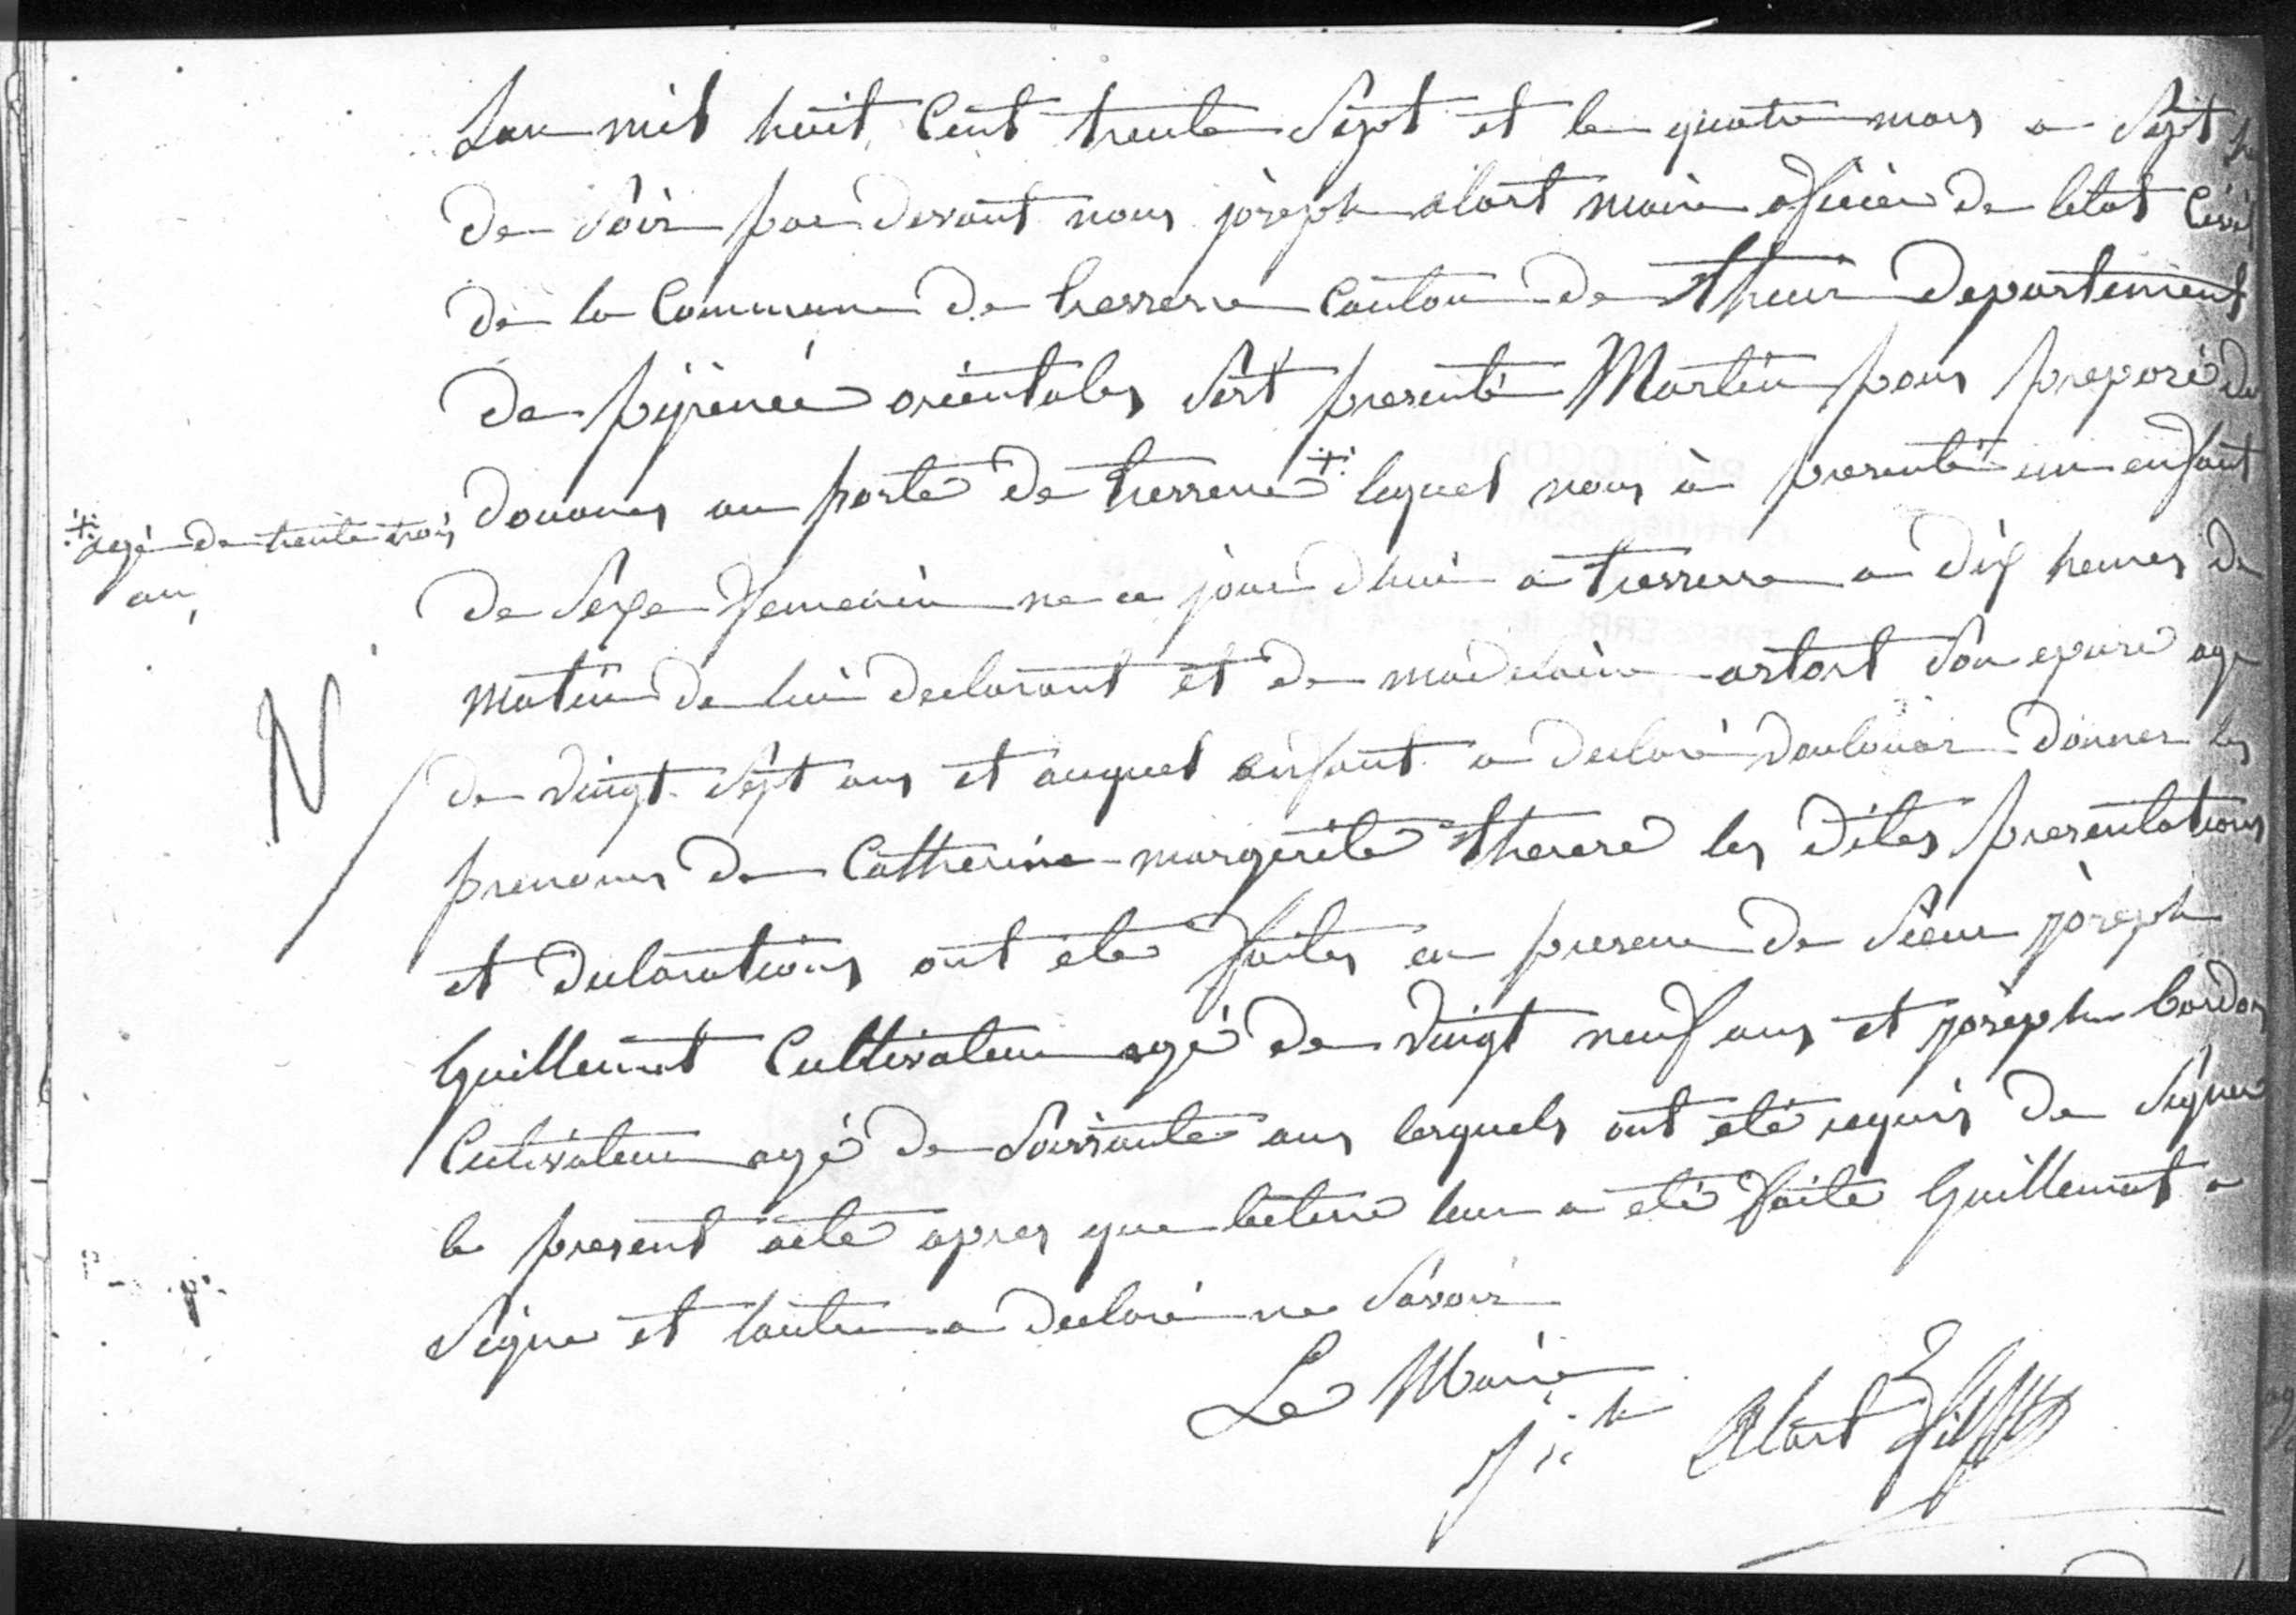 Lan mil huit Cent trente Sept et le quatre mars a Sept
de Soir par devant nous joseph alart maire oficier de letat Civil
de la Commune de tresserre Canton de thuir Departement
de pijrenée orientales Sest presenté Martin pour preposé de
Douanes au poste de tresserre ⁜ lequel nous à presenté un enfant
⁜ agé de trente trois
ans
de Sexe femenin ne ce jour dhui a tresserre a dix heures de
matin de lui declarant et de madelaine artost Son epouse age
de vingt Sept ans et auquel enfant a declaré voulouar donner les
N
prenoms de Catherine margerite therese les dites presentations
et declarations ont eté faites en presence de Sieur joseph
Guillemat Cultivateur agé de vingt neuf ans et joseph bordas
Cultivateur agé de Soissante ans lesquels ont eté requis de Signer
le present acte apres que lecture leur a eté faite Guillemat a
Signe et lautre a declaré ne Savoir
Le Maire
Jph Alart fils